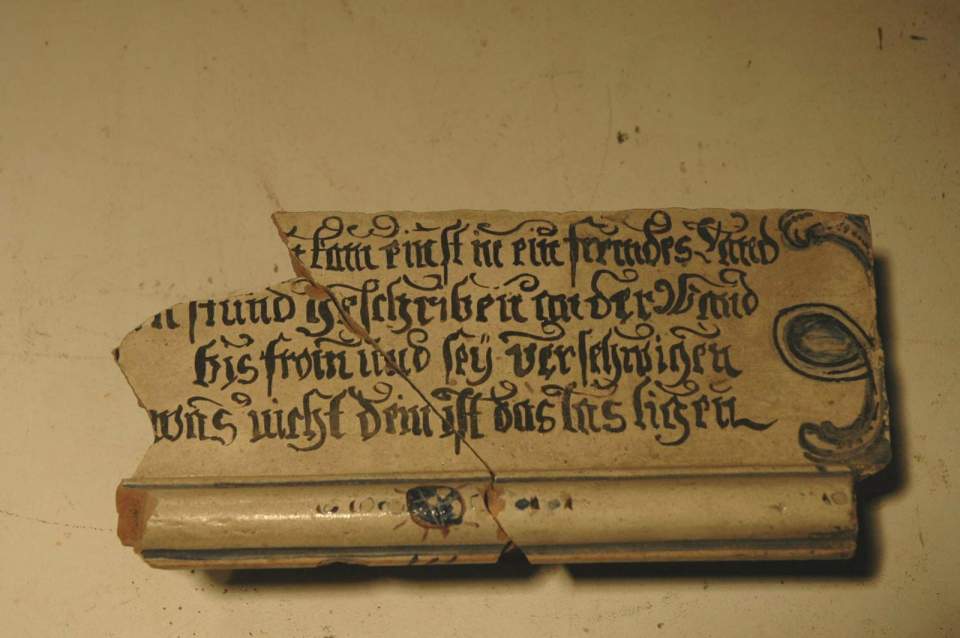 kam einst in ein fremdes Land
stund geschriben an der Wand
bis from und sey verschwigen
was nicht dein ist das las ligen